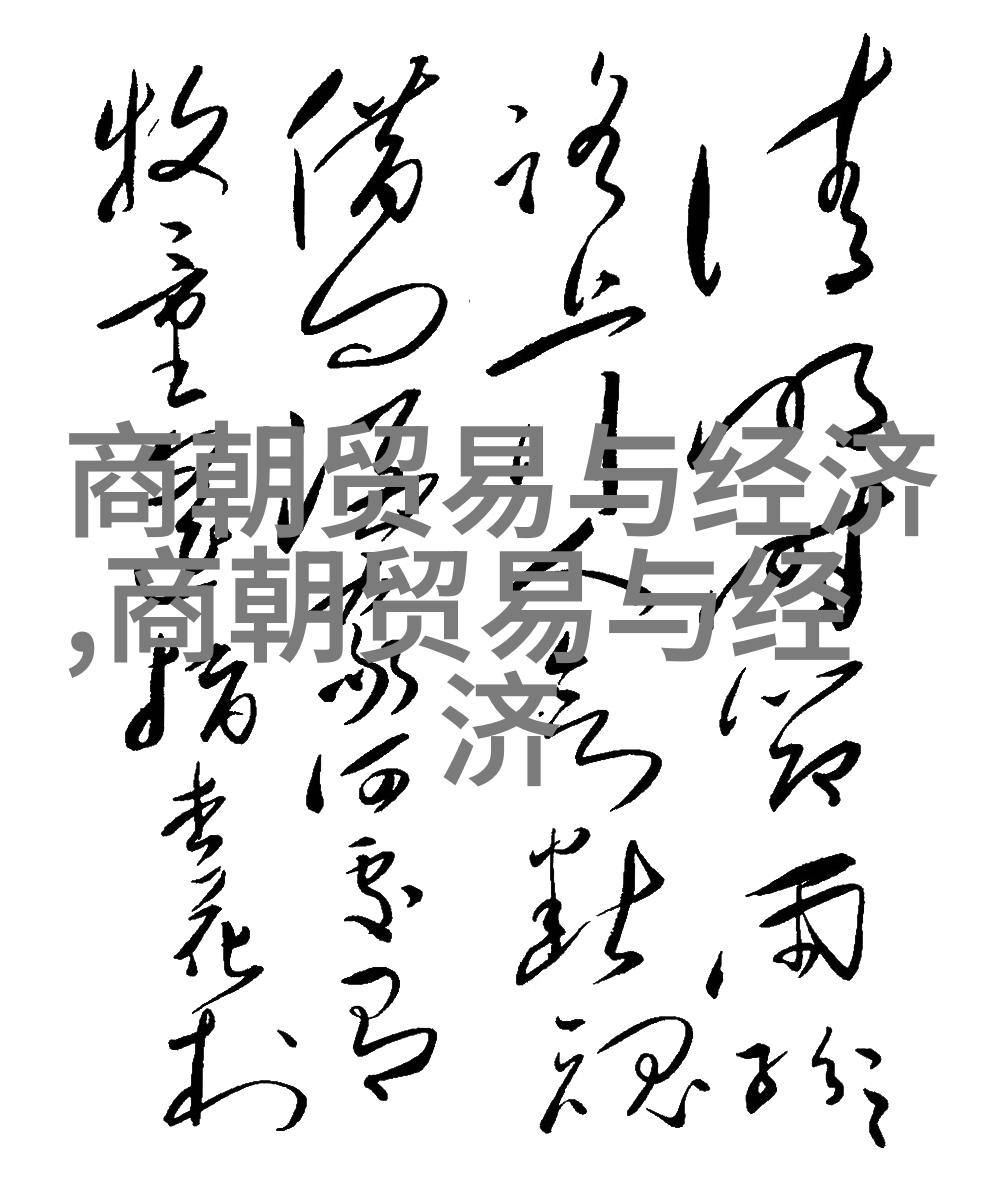 商朝贸易与经济
,商朝贸易与经
济
清明時節雨紛紛
路上行人欲斷魂
借問酒家何處有
牧童遙指杏花村